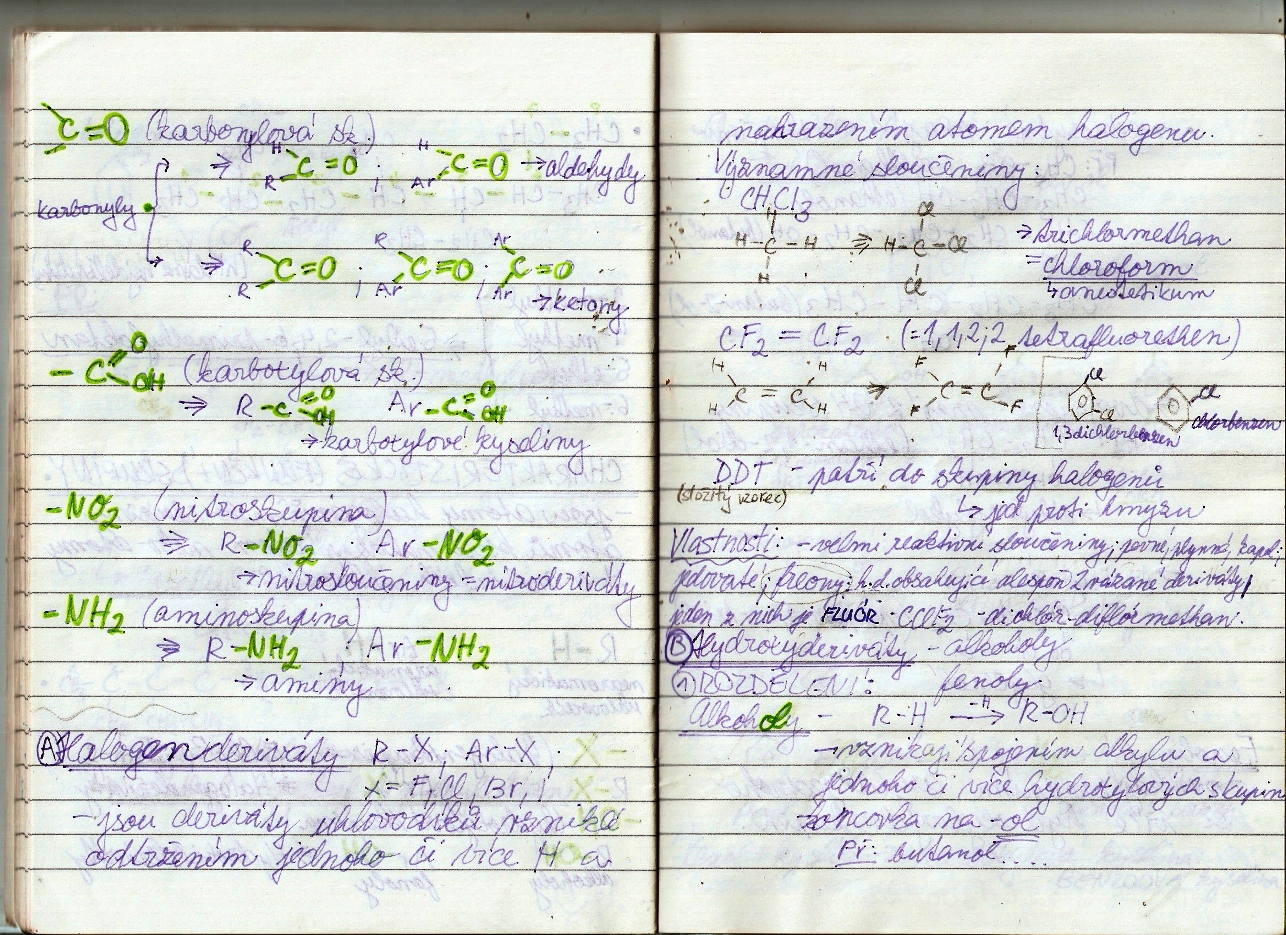 C=O (karbonylová sk.)
karbonyly
⇒ H R C=O ; H Ar C=O → aldehydy
⇒ R R C=O ; R Ar C=O ; Ar Ar C=O
→ ketony
-C=O OH (karboxylová sk.)
⇒ R-C=O OH Ar-C=O OH
→ karboxylové kyseliny
-NO2 (nitroskupina)
⇒ R-NO2 ; Ar-NO2
→ nitrosloučeniny = nitroderiváty
-NH2 (aminoskupina)
⇒ R-NH2 ; Ar-NH2
→ aminy
Ⓐ Halogenderiváty R-X ; Ar-X ;
X = F, Cl, Br, I
- jsou deriváty uhlovodíků vzniklé
odtržením jednoho či více H a
nahrazením atomem halogenu.
Významné sloučeniny:
CHCl3
H H-C-H H ⇒ Cl H-C-Cl Cl → trichlormethan
= chloroform
↳ anestetikum
CF2 = CF2 (=1,1,2,2 tetrafluorethen)
H H C=C H H ⇒ F F C=C F F
Cl Cl 1,3 dichlorbenzen Cl chlorbenzen
DDT - patří do skupiny halogenů
(složitý vzorec) ↳ jed proti hmyzu
Vlastnosti: - velmi reaktivní sloučeniny; pevné, plynné, kapal.
jedovaté; freony: h.d. obsahující alespoň 2 vázané deriváty,
jeden z nich je FLUÓR · CCl2F2 - dichlór-diflórmethan.
Ⓑ Hydroxyderiváty - alkoholy
① ROZDĚLENÍ: fenoly
Alkoholy - R-H -H → R-OH
→ vznikají spojením alkylu a
jednoho či více hydroxylových skupin
koncovka na -ol
Př: butanol....